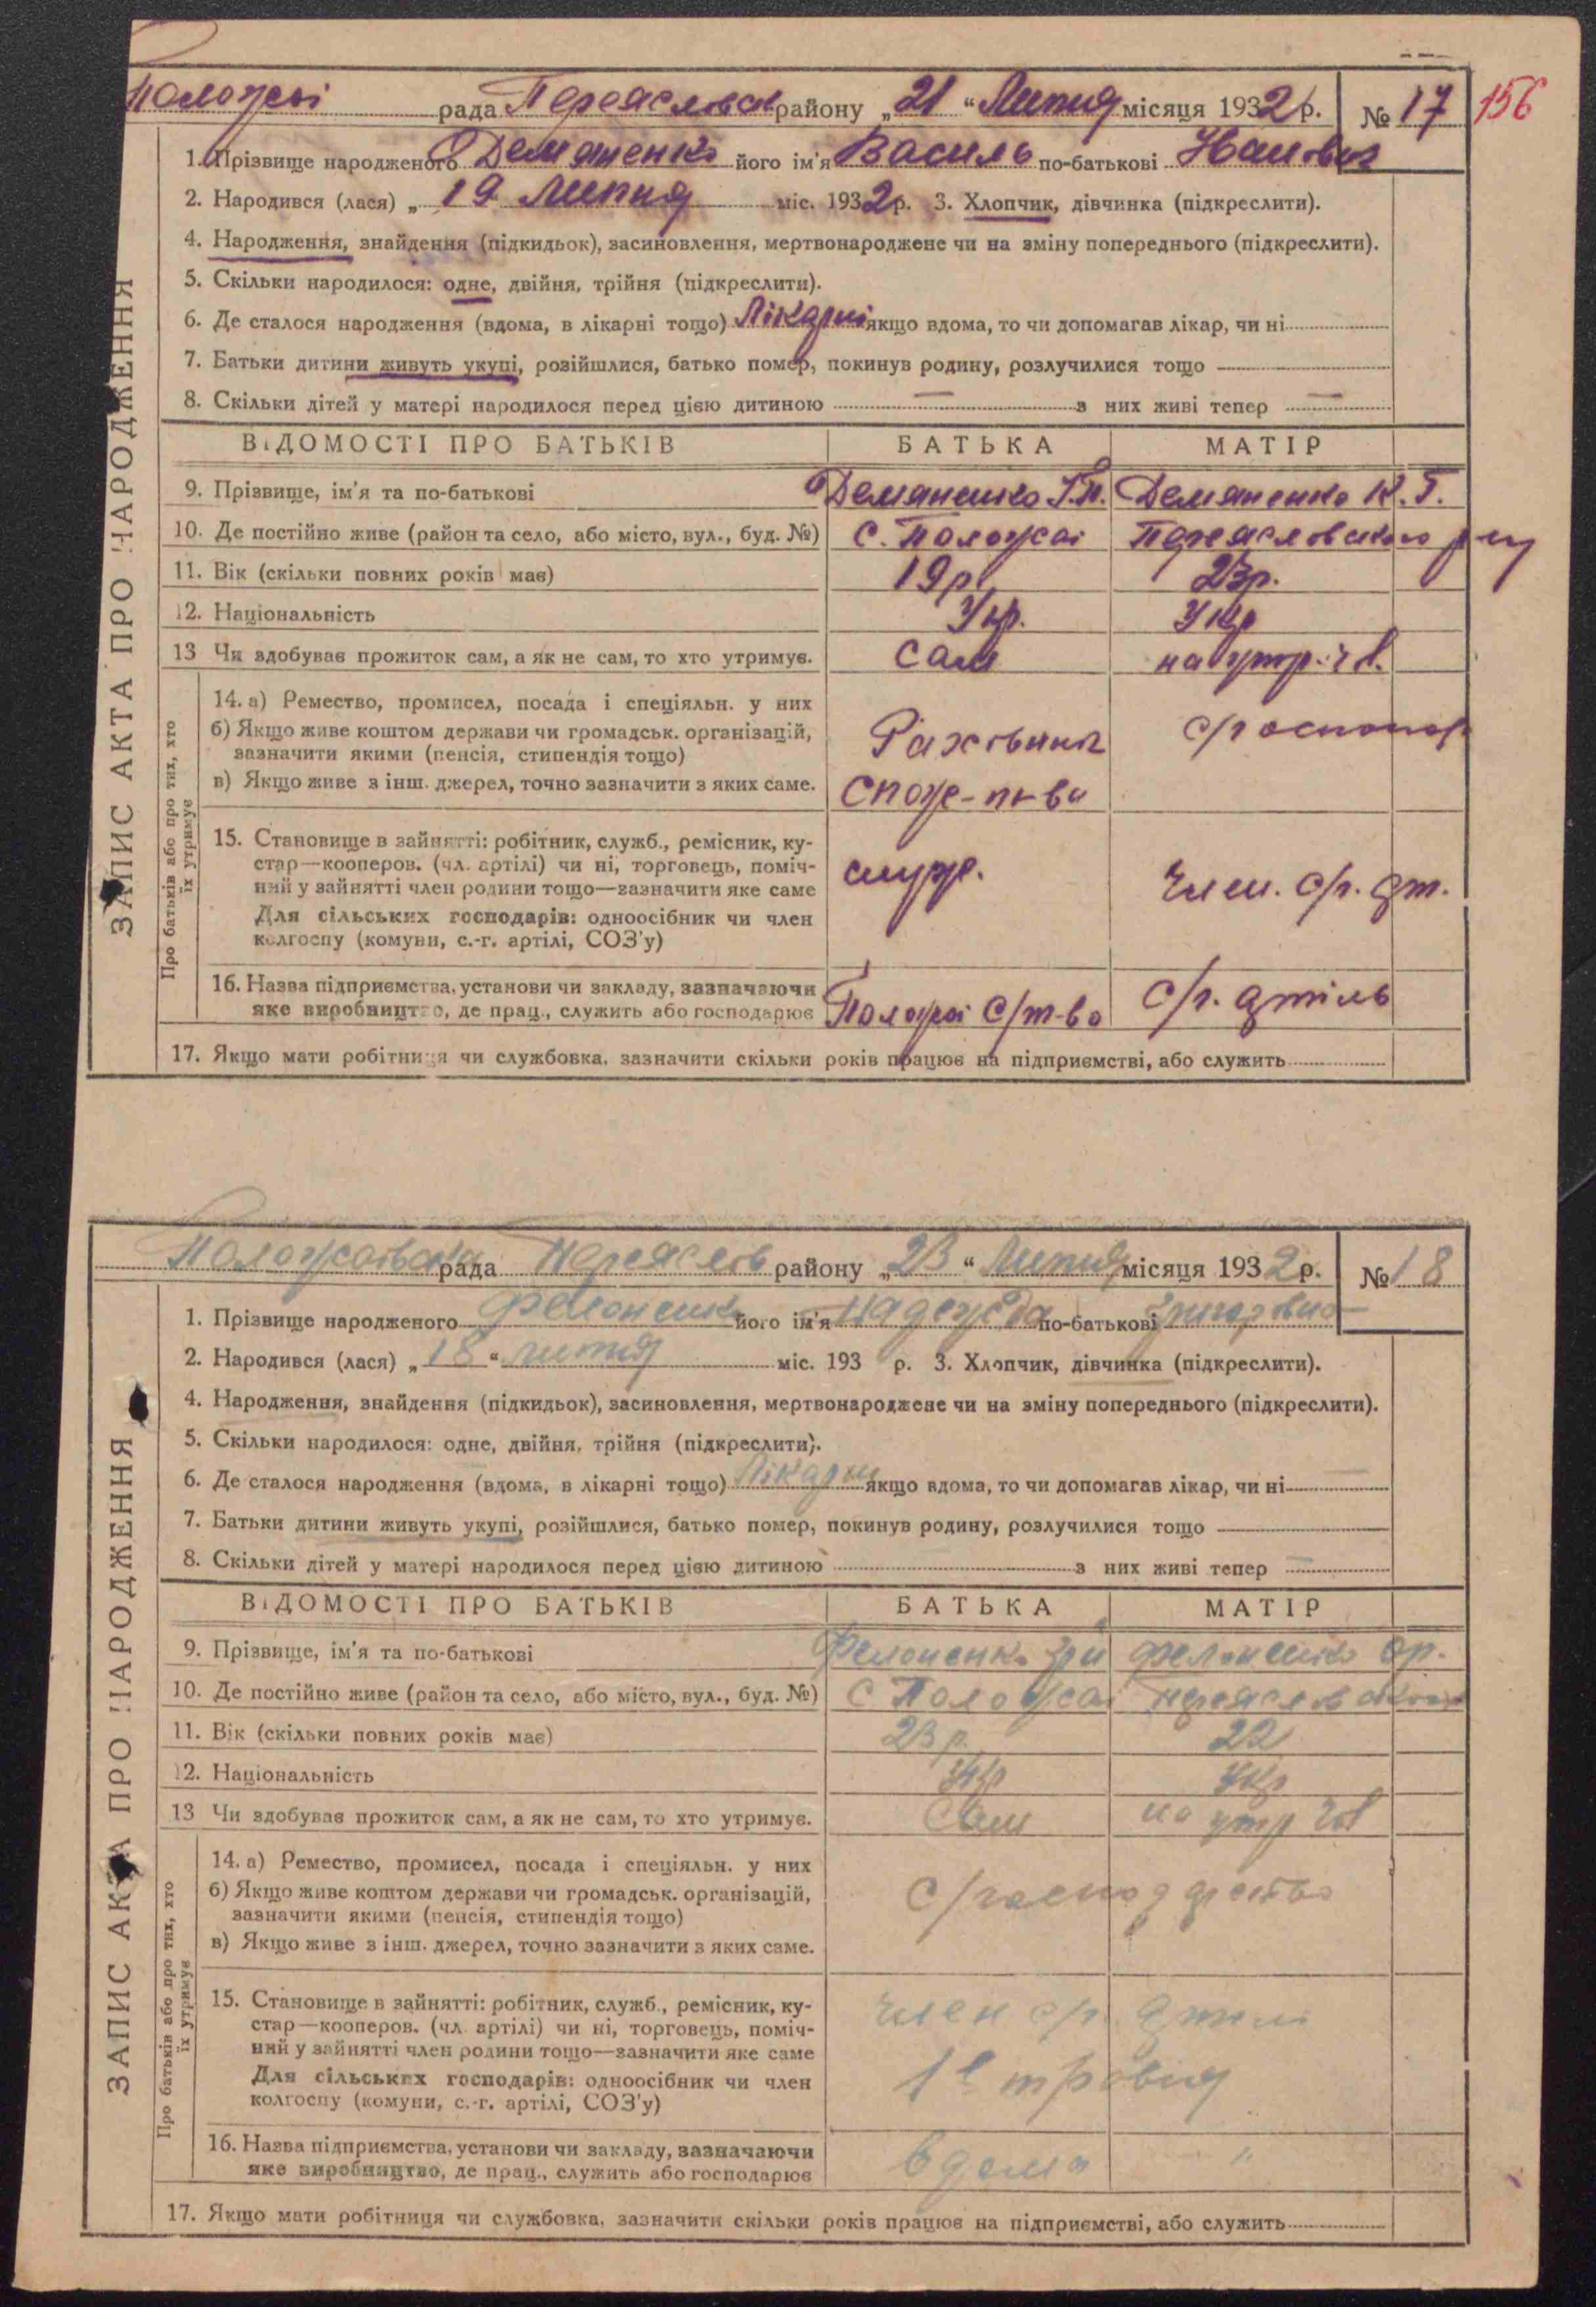 Положаі рада Переяслов району „21“ Липня місяця 1932 р. № 17 156
1. Прізвище народженого Демяненко його ім'я Василь по-батькові Іванович
2. Народився (лася) „19 Липня міс. 1932 р. 3. Хлопчик, дівчинка (підкреслити).
4. Народження, знайдення (підкидьок), засиновлення, мертвонароджене чи на зміну попереднього (підкреслити).
5. Скільки народилося: одне, двійня, трійня (підкреслити).
6. Де сталося народження (вдома, в лікарні тощо) Лікарні якщо вдома, то чи допомагав лікар, чи ні
7. Батьки дитини живуть укупі, розійшлися, батько помер, покинув родину, розлучилися тощо —
8. Скільки дітей у матері народилося перед цією дитиною — з них живі тепер —
ЗАПИС АКТА ПРО НАРОДЖЕННЯ
ВІДОМОСТІ ПРО БАТЬКІВ БАТЬКА МАТІР
9. Прізвище, ім'я та по-батькові Демяненко І.П. Демяненко К. Г.
10. Де постійно живе (район та село, або місто, вул., буд. №) С. Положаі Переясловского р-ну
11. Вік (скільки повних років має) 19 р. 23 р.
12. Національність Укр. Укр
13 Чи здобуває прожиток сам, а як не сам, то хто утримує. Сам на утр. чл.
Про батьків або про тих, хто їх утримує
14. а) Ремество, промисел, посада і спеціяльн. у них
б) Якщо живе коштом держави чи громадськ. організацій,
зазначити якими (пенсія, стипендія тощо)
в) Якщо живе з інш. джерел, точно зазначити з яких саме.
Рахівник
Спож-т-ва
с/господар
15. Становище в зайнятті: робітник, служб., ремісник, ку-
стар—кооперов. (чл. артілі) чи ні, торговець, поміч-
ний у зайнятті член родини тощо—зазначити яке саме
Для сільських господарів: одноосібник чи член
колгоспу (комуни, с.-г. артілі, СОЗ'у)
служ. Член. с/г. арт.
16. Назва підприємства, установи чи закладу, зазначаючи
яке виробництво, де прац., служить або господарює
Положаі С/т-во С/г. артіль
17. Якщо мати робітниця чи службовка, зазначити скільки років працює на підприємстві, або служить
Положаівска рада Переяслов району „23“ Липня місяця 1932 р. № 18
1. Прізвище народженого Филоненко його ім'я Надежда по-батькові Григорівна
2. Народився (лася) „18“ липня міс. 193 р. 3. Хлопчик, дівчинка (підкреслити).
4. Народження, знайдення (підкидьок), засиновлення, мертвонароджене чи на зміну попереднього (підкреслити).
5. Скільки народилося: одне, двійня, трійня (підкреслити).
6. Де сталося народження (вдома, в лікарні тощо) Лікарні якщо вдома, то чи допомагав лікар, чи ні —
7. Батьки дитини живуть укупі, розійшлися, батько помер, покинув родину, розлучилися тощо —
8. Скільки дітей у матері народилося перед цією дитиною з них живі тепер —
ЗАПИС АКТА ПРО НАРОДЖЕННЯ
ВІДОМОСТІ ПРО БАТЬКІВ БАТЬКА МАТІР
9. Прізвище, ім'я та по-батькові Филоненко Гри Филоненко
10. Де постійно живе (район та село, або місто, вул., буд. №) С Положаі Переясловского
11. Вік (скільки повних років має) 23 р. 22
12. Національність Укр Укр
13 Чи здобуває прожиток сам, а як не сам, то хто утримує. Сам на утр чл
Про батьків або про тих, хто їх утримує
14. а) Ремество, промисел, посада і спеціяльн. у них
б) Якщо живе коштом держави чи громадськ. організацій,
зазначити якими (пенсія, стипендія тощо)
в) Якщо живе з інш. джерел, точно зазначити з яких саме.
С/господарство
15. Становище в зайнятті: робітник, служб., ремісник, ку-
стар—кооперов. (чл. артілі) чи ні, торговець, поміч-
ний у зайнятті член родини тощо—зазначити яке саме
Для сільських господарів: одноосібник чи член
колгоспу (комуни, с.-г. артілі, СОЗ'у)
член с/г. артілі
1е травня
16. Назва підприємства, установи чи закладу, зазначаючи
яке виробництво, де прац., служить або господарює
вдома "
17. Якщо мати робітниця чи службовка, зазначити скільки років працює на підприємстві, або служить